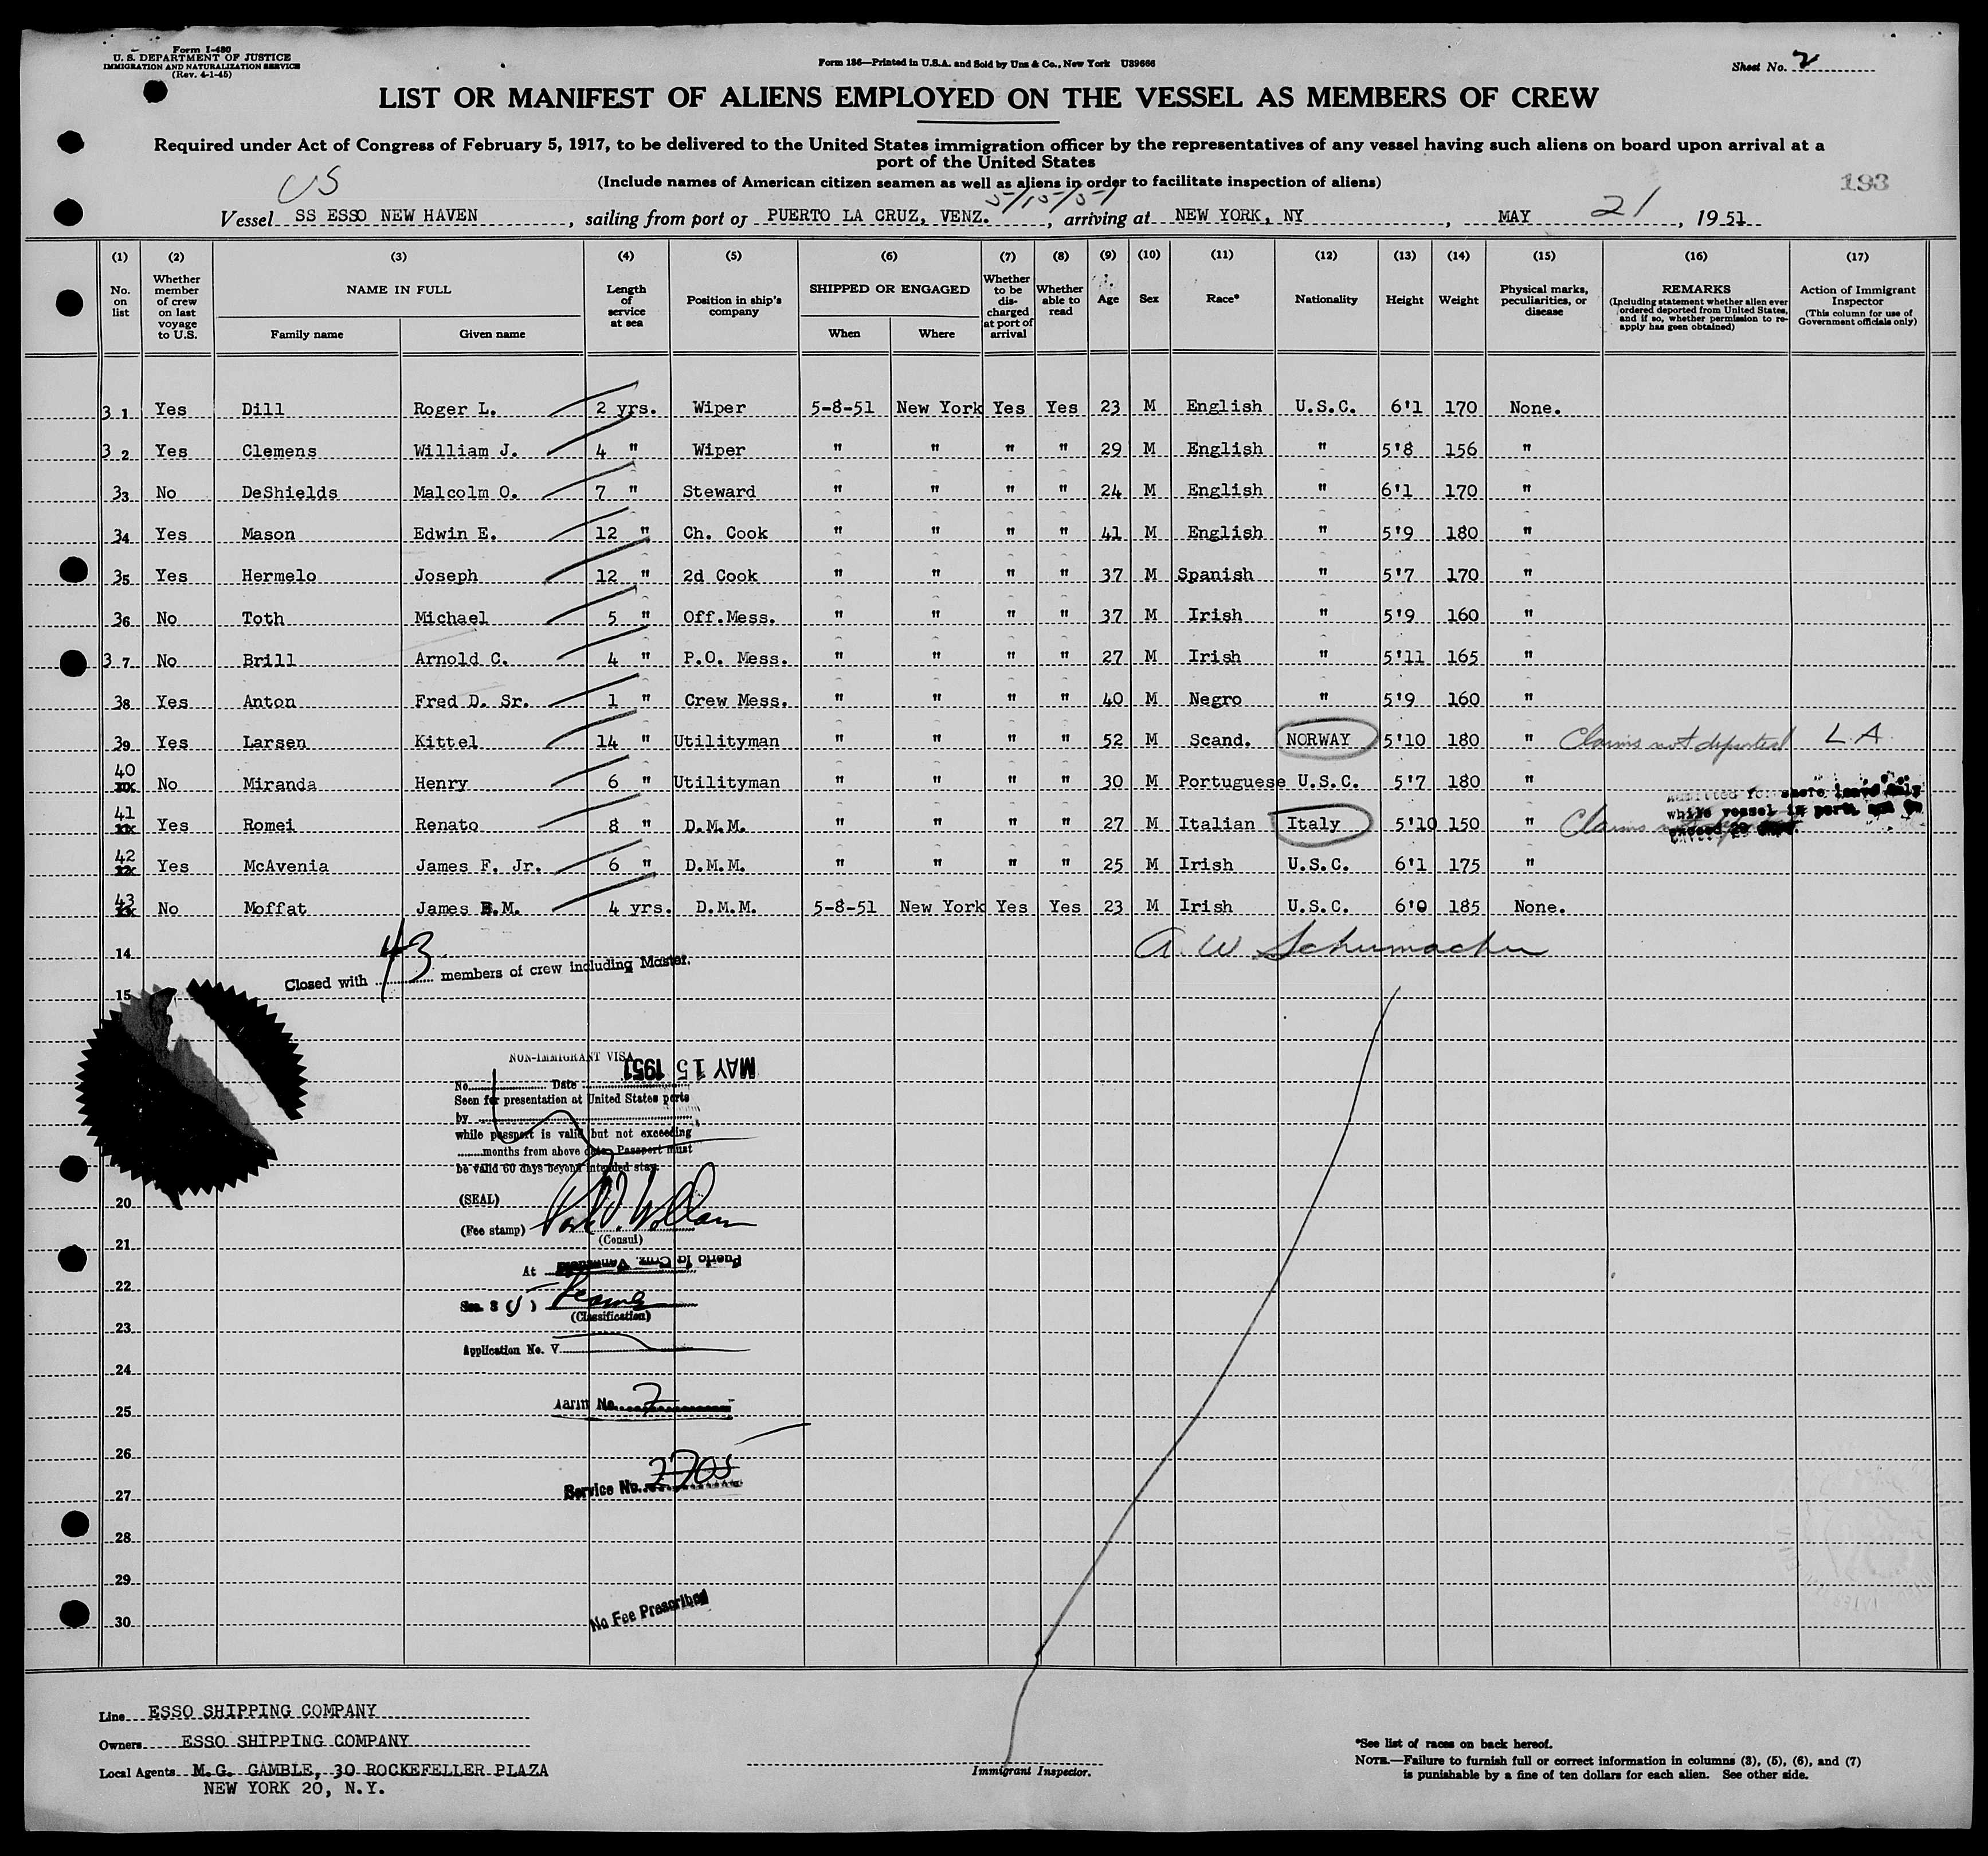 Form I-480
U. S. DEPARTMENT OF JUSTICE
IMMIGRATION AND NATURALIZATION SERVICE
(Rev. 4-1-45)
Form 136—Printed in U.S.A. and Sold by Unz & Co., New York U39666
Sheet No. 2
LIST OR MANIFEST OF ALIENS EMPLOYED ON THE VESSEL AS MEMBERS OF CREW
Required under Act of Congress of February 5, 1917, to be delivered to the United States immigration officer by the representatives of any vessel having such aliens on board upon arrival at a
port of the United States
(Include names of American citizen seamen as well as aliens in order to facilitate inspection of aliens)
193
US
5/15/51
Vessel SS ESSO NEW HAVEN, sailing from port of PUERTO LA CRUZ, VENZ., arriving at NEW YORK, NY, MAY 21, 1951
(1) No. on list
(2) Whether member of crew on last voyage to U.S.
(3) NAME IN FULL Family name Given name
(4) Length of service at sea
(5) Position in ship's company
(6) SHIPPED OR ENGAGED When Where
(7) Whether to be discharged at port of arrival
(8) Whether able to read
(9) Age
(10) Sex
(11) Race*
(12) Nationality
(13) Height
(14) Weight
(15) Physical marks, peculiarities, or disease
(16) REMARKS (Including statement whether alien ever ordered deported from United States, and if so, whether permission to reapply has been obtained)
(17) Action of Immigrant Inspector (This column for use of Government officials only)
31 Yes Dill Roger L. 2 yrs. Wiper 5-8-51 New York Yes Yes 23 M English U.S.C. 6'1 170 None.
32 Yes Clemens William J. 4 " Wiper " " " " 29 M English " 5'8 156 "
33 No DeShields Malcolm O. 7 " Steward " " " " 24 M English " 6'1 170 "
34 Yes Mason Edwin E. 12 " Ch. Cook " " " " 41 M English " 5'9 180 "
35 Yes Hermelo Joseph 12 " 2d Cook " " " " 37 M Spanish " 5'7 170 "
36 No Toth Michael 5 " Off.Mess. " " " " 37 M Irish " 5'9 160 "
37 No Brill Arnold C. 4 " P.O. Mess. " " " " 27 M Irish " 5'11 165 "
38 Yes Anton Fred D. Sr. 1 " Crew Mess. " " " " 40 M Negro " 5'9 160 "
39 Yes Larsen Kittel 14 " Utilityman " " " " 52 M Scand. NORWAY 5'10 180 " Claims not deported L A
40 No Miranda Henry 6 " Utilityman " " " " 30 M Portuguese U.S.C. 5'7 180 "
Admitted for shore leave only
while vessel in port
exceed 29 days.
41 Yes Romei Renato 8 " D.M.M. " " " " 27 M Italian Italy 5'10 150 " Claims not
42 Yes McAvenia James F. Jr. 6 " D.M.M. " " " " 25 M Irish U.S.C. 6'1 175 "
43 No Moffat James B.M. 4 yrs. D.M.M. 5-8-51 New York Yes Yes 23 M Irish U.S.C. 6'0 185 None.
14
A. W. Schumacher
Closed with 43 members of crew including Master.
15
NON-IMMIGRANT VISA
MAY 15 1951
No. Date
Seen for presentation at United States ports
by
while passport is valid but not exceeding
months from above date. Passport must
be valid 60 days beyond intended stay.
(SEAL)
20
(Fee stamp)
(Consul)
21
At Puerto la Cruz, Venezuela
22
Sec. 3 (5)
(Classification)
23
Application No. V
24
Tariff No. 7
25
26
Service No. 2705
27
28
29
No Fee Prescribed
30
Line ESSO SHIPPING COMPANY
Owners ESSO SHIPPING COMPANY
Local Agents M.G. GAMBLE, 30 ROCKEFELLER PLAZA
NEW YORK 20, N.Y.
Immigrant Inspector.
*See list of races on back hereof.
NOTE.—Failure to furnish full or correct information in columns (3), (5), (6), and (7)
is punishable by a fine of ten dollars for each alien. See other side.